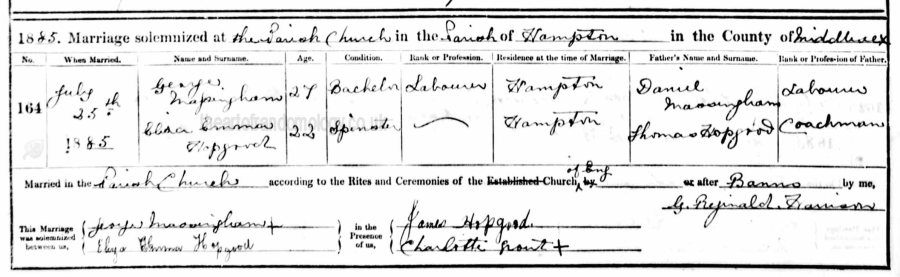 1885. Marriage solemnized at the Parish Church in the Parish of Hampton in the County of Middlesex
No. When Married. Name and Surname. Age. Condition. Rank or Profession. Residence at the time of Marriage. Father's Name and Surname. Rank or Profession of Father.
164 July 25th 1885 George Massingham 27 Bachelor Labourer Hampton Daniel Massingham Labourer
Eliza Emma Hopgood 22 Spinster Hampton Thomas Hopgood Coachman
Married in the Parish Church according to the Rites and Ceremonies of the Established Church by of Eng or after Banns by me,
G. Reginald
This Marriage was solemnized between us, George Massingham + in the Presence of us, James Hopgood
Eliza Emma Hopgood Charlotte +